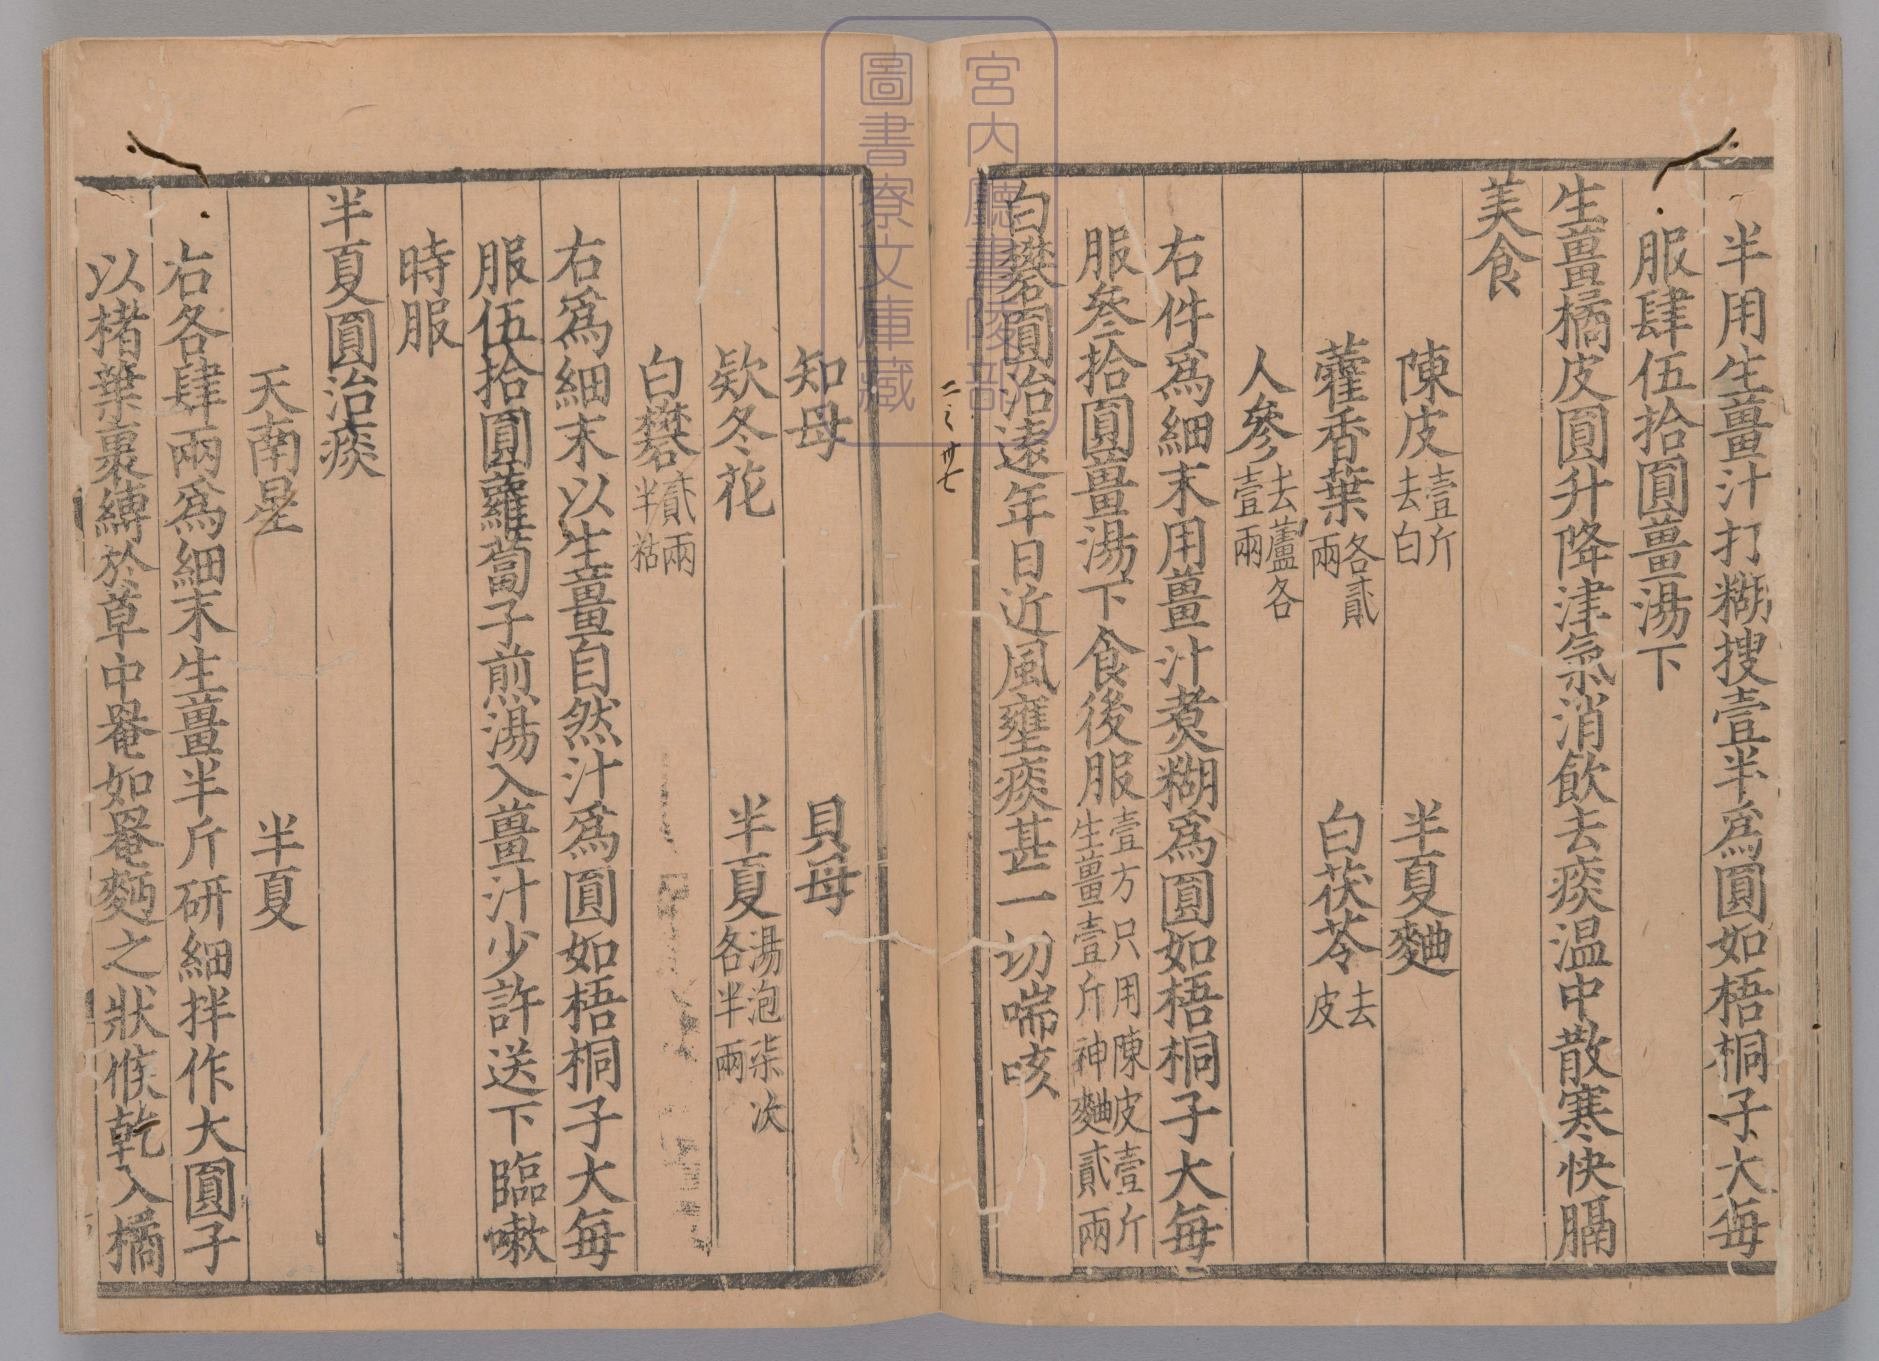 半用生薑汁打糊搜壹半爲圓如梧桐子大每
服肆伍拾圓薑湯下
生薑橘皮圓升降津氣消飲去痰温中散寒快膈
美食
陳皮壹斤去白 半夏麯
藿香葉各貳兩 白茯苓去皮
人參去蘆各壹兩
右件爲細末用薑汁煑糊爲圓如梧桐子大每
服叄拾圓薑湯下食後服壹方只用陳皮壹斤生薑壹斤神麯貳兩
白礬圓治遠年日近風壅痰甚一切喘咳
二之廿七
知母 貝母
欵冬花 半夏湯泡柒次各半兩
白礬貳兩半枯
右爲細末以生薑自然汁爲圓如梧桐子大每
服伍拾圓蘿蔔子煎湯入薑汁少許送下臨嗽
時服
半夏圓治痰
天南星 半夏
右各肆兩爲細末生薑半斤研細拌作大圓子
以楮葉裹縛於草中罨如罨麪之狀候乾入橘
宮内廳書陵部
圖書寮文庫藏